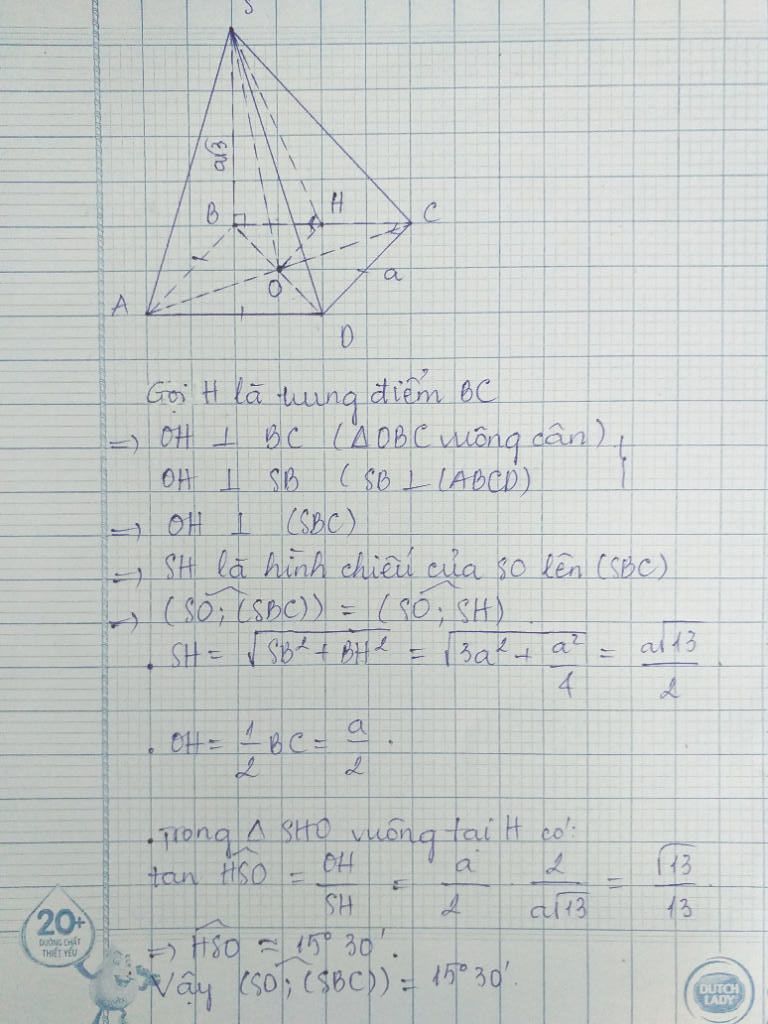 S
a√3
B
H
C
O
a
A
D
Gọi H là trung điểm BC
=> OH ⊥ BC (ΔOBC vuông cân)
OH ⊥ SB (SB ⊥ (ABCD)
=> OH ⊥ (SBC)
=> SH là hình chiếu của SO lên (SBC)
=> (SO; (SBC)) = (SO; SH)
. SH = √(SB² + BH²) = √(3a² + a²/4) = a√13/2.
. OH = 1/2 BC = a/2.
. Trong Δ SHO vuông tại H có:
tan HSO = OH/SH = a/2 . 2/a√13 = √13/13.
=> HSO ≈ 15° 30'.
Vậy (SO; (SBC)) = 15° 30'.
20+
DƯỠNG CHẤT
THIẾT YẾU
DUTCH
LADY